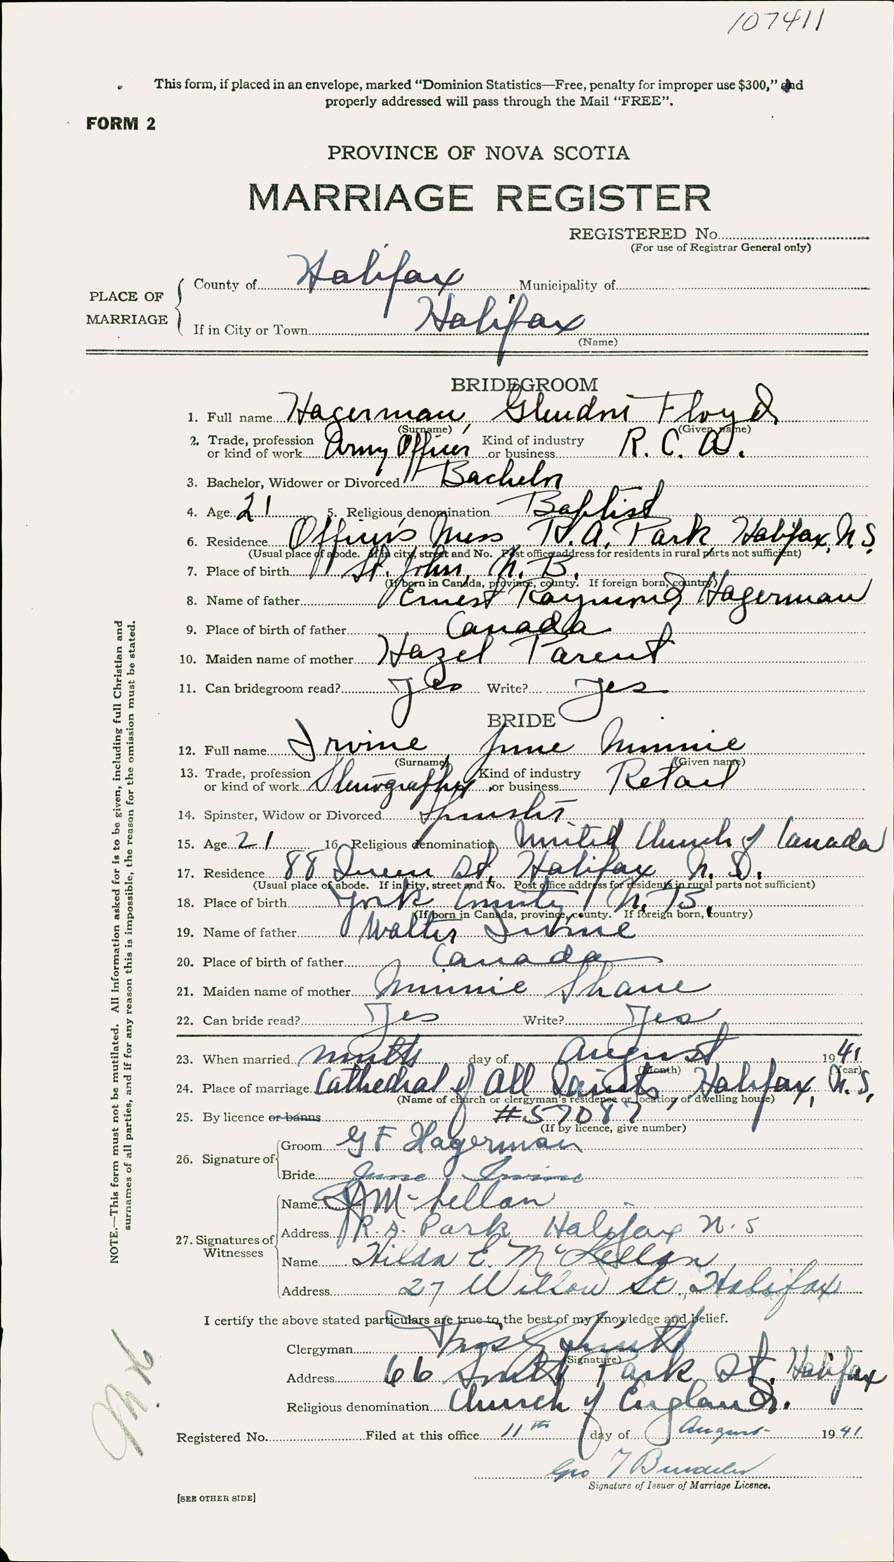 107411
This form, if placed in an envelope, marked "Dominion Statistics—Free, penalty for improper use $300," and
properly addressed will pass through the Mail "FREE".
FORM 2
PROVINCE OF NOVA SCOTIA
MARRIAGE REGISTER
REGISTERED No.
(For use of Registrar General only)
PLACE OF MARRIAGE
County of Halifax Municipality of
If in City or Town Halifax
(Name)
BRIDEGROOM
1. Full name Hagerman, Glendon Floyd
(Surname) (Given name)
2. Trade, profession or kind of work Army Officer Kind of industry or business R. C. A.
3. Bachelor, Widower or Divorced Bachelor
4. Age 21 5. Religious denomination Baptist
6. Residence Officer's Mess, R.A. Park Halifax, N.S.
(Usual place of abode. If in city, street and No. Post office address for residents in rural parts not sufficient)
7. Place of birth St. John, N.B.
(If born in Canada, province, county. If foreign born, country)
8. Name of father Ernest Raymond Hagerman
9. Place of birth of father Canada
10. Maiden name of mother Hazel Parent
11. Can bridegroom read? Yes Write? Yes
BRIDE
12. Full name Irvine June Minnie
(Surname) (Given name)
13. Trade, profession or kind of work Stenographer Kind of industry or business Retail
14. Spinster, Widow or Divorced Spinster
15. Age 21 16. Religious denomination United Church of Canada
17. Residence 88 Queen St. Halifax N.S.
(Usual place of abode. If in city, street and No. Post office address for residents in rural parts not sufficient)
18. Place of birth York County, N.B.
(If born in Canada, province, county. If foreign born, country)
19. Name of father Walter Irvine
20. Place of birth of father Canada
21. Maiden name of mother Minnie Shane
22. Can bride read? Yes Write? Yes
23. When married ninth day of August 1941
(Month) (Year)
24. Place of marriage Cathedral of All Saints, Halifax, N.S.
(Name of church or clergyman's residence or location of dwelling house)
25. By licence or banns #57087
(If by licence, give number)
26. Signature of
Groom G F Hagerman
Bride June Irvine
27. Signatures of Witnesses
Name McLellan
Address R.A. Park Halifax N.S
Name Hilda E. McLellan
Address 27 Willow St., Halifax
I certify the above stated particulars are true to the best of my knowledge and belief.
Clergyman
(Signature)
Address 66 South Park St. Halifax
Religious denomination Church of England.
Registered No. Filed at this office 11th day of August 1941
Geo
Signature of Issuer of Marriage Licence.
[SEE OTHER SIDE]
NOTE.—This form must not be mutilated. All information asked for is to be given, including full Christian and
surnames of all parties, and if for any reason this is impossible, the reason for the omission must be stated.